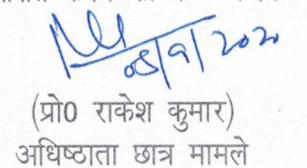 08/9/2020
(प्रो0 राकेश कुमार)
अधिष्ठाता छात्र मामले